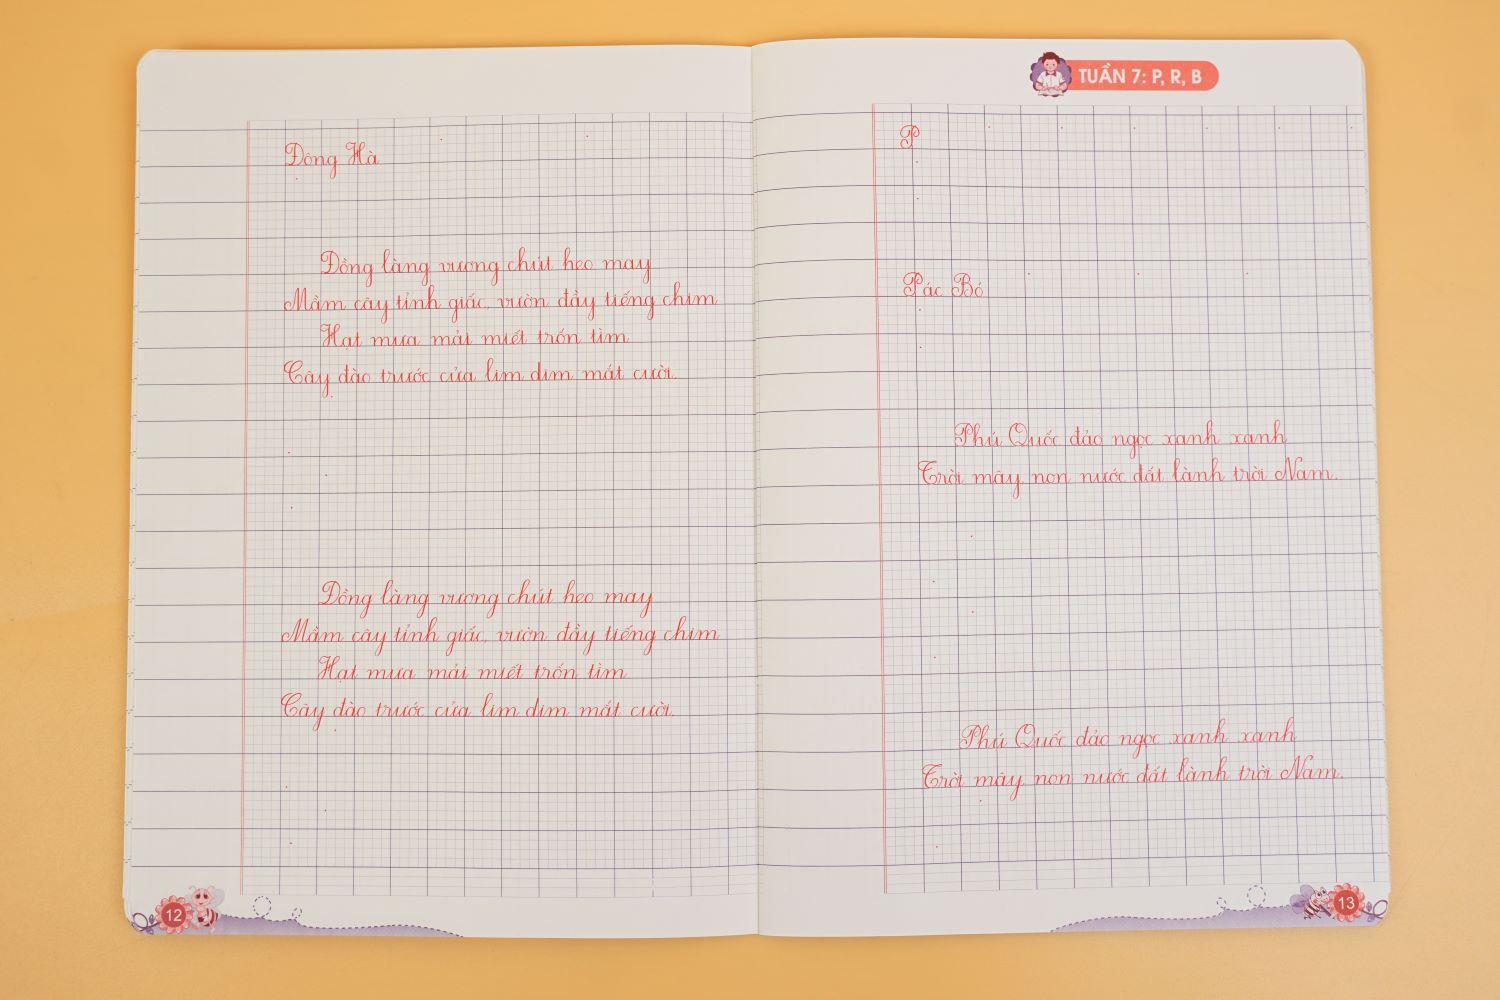 Đông Hà
Đồng làng vương chút heo may
Mầm cây tỉnh giấc, vườn đầy tiếng chim
Hạt mưa mải miết trốn tìm
Cây đào trước cửa lim dim mắt cười.
Đồng làng vương chút heo may
Mầm cây tỉnh giấc, vườn đầy tiếng chim
Hạt mưa mải miết trốn tìm
Cây đào trước cửa lim dim mắt cười.
12
TUẦN 7: P, R, B
P
Pác Bó
Phú Quốc đảo ngọc xanh xanh
Trời mây non nước đất lành trời Nam.
Phú Quốc đảo ngọc xanh xanh
Trời mây non nước đất lành trời Nam.
13